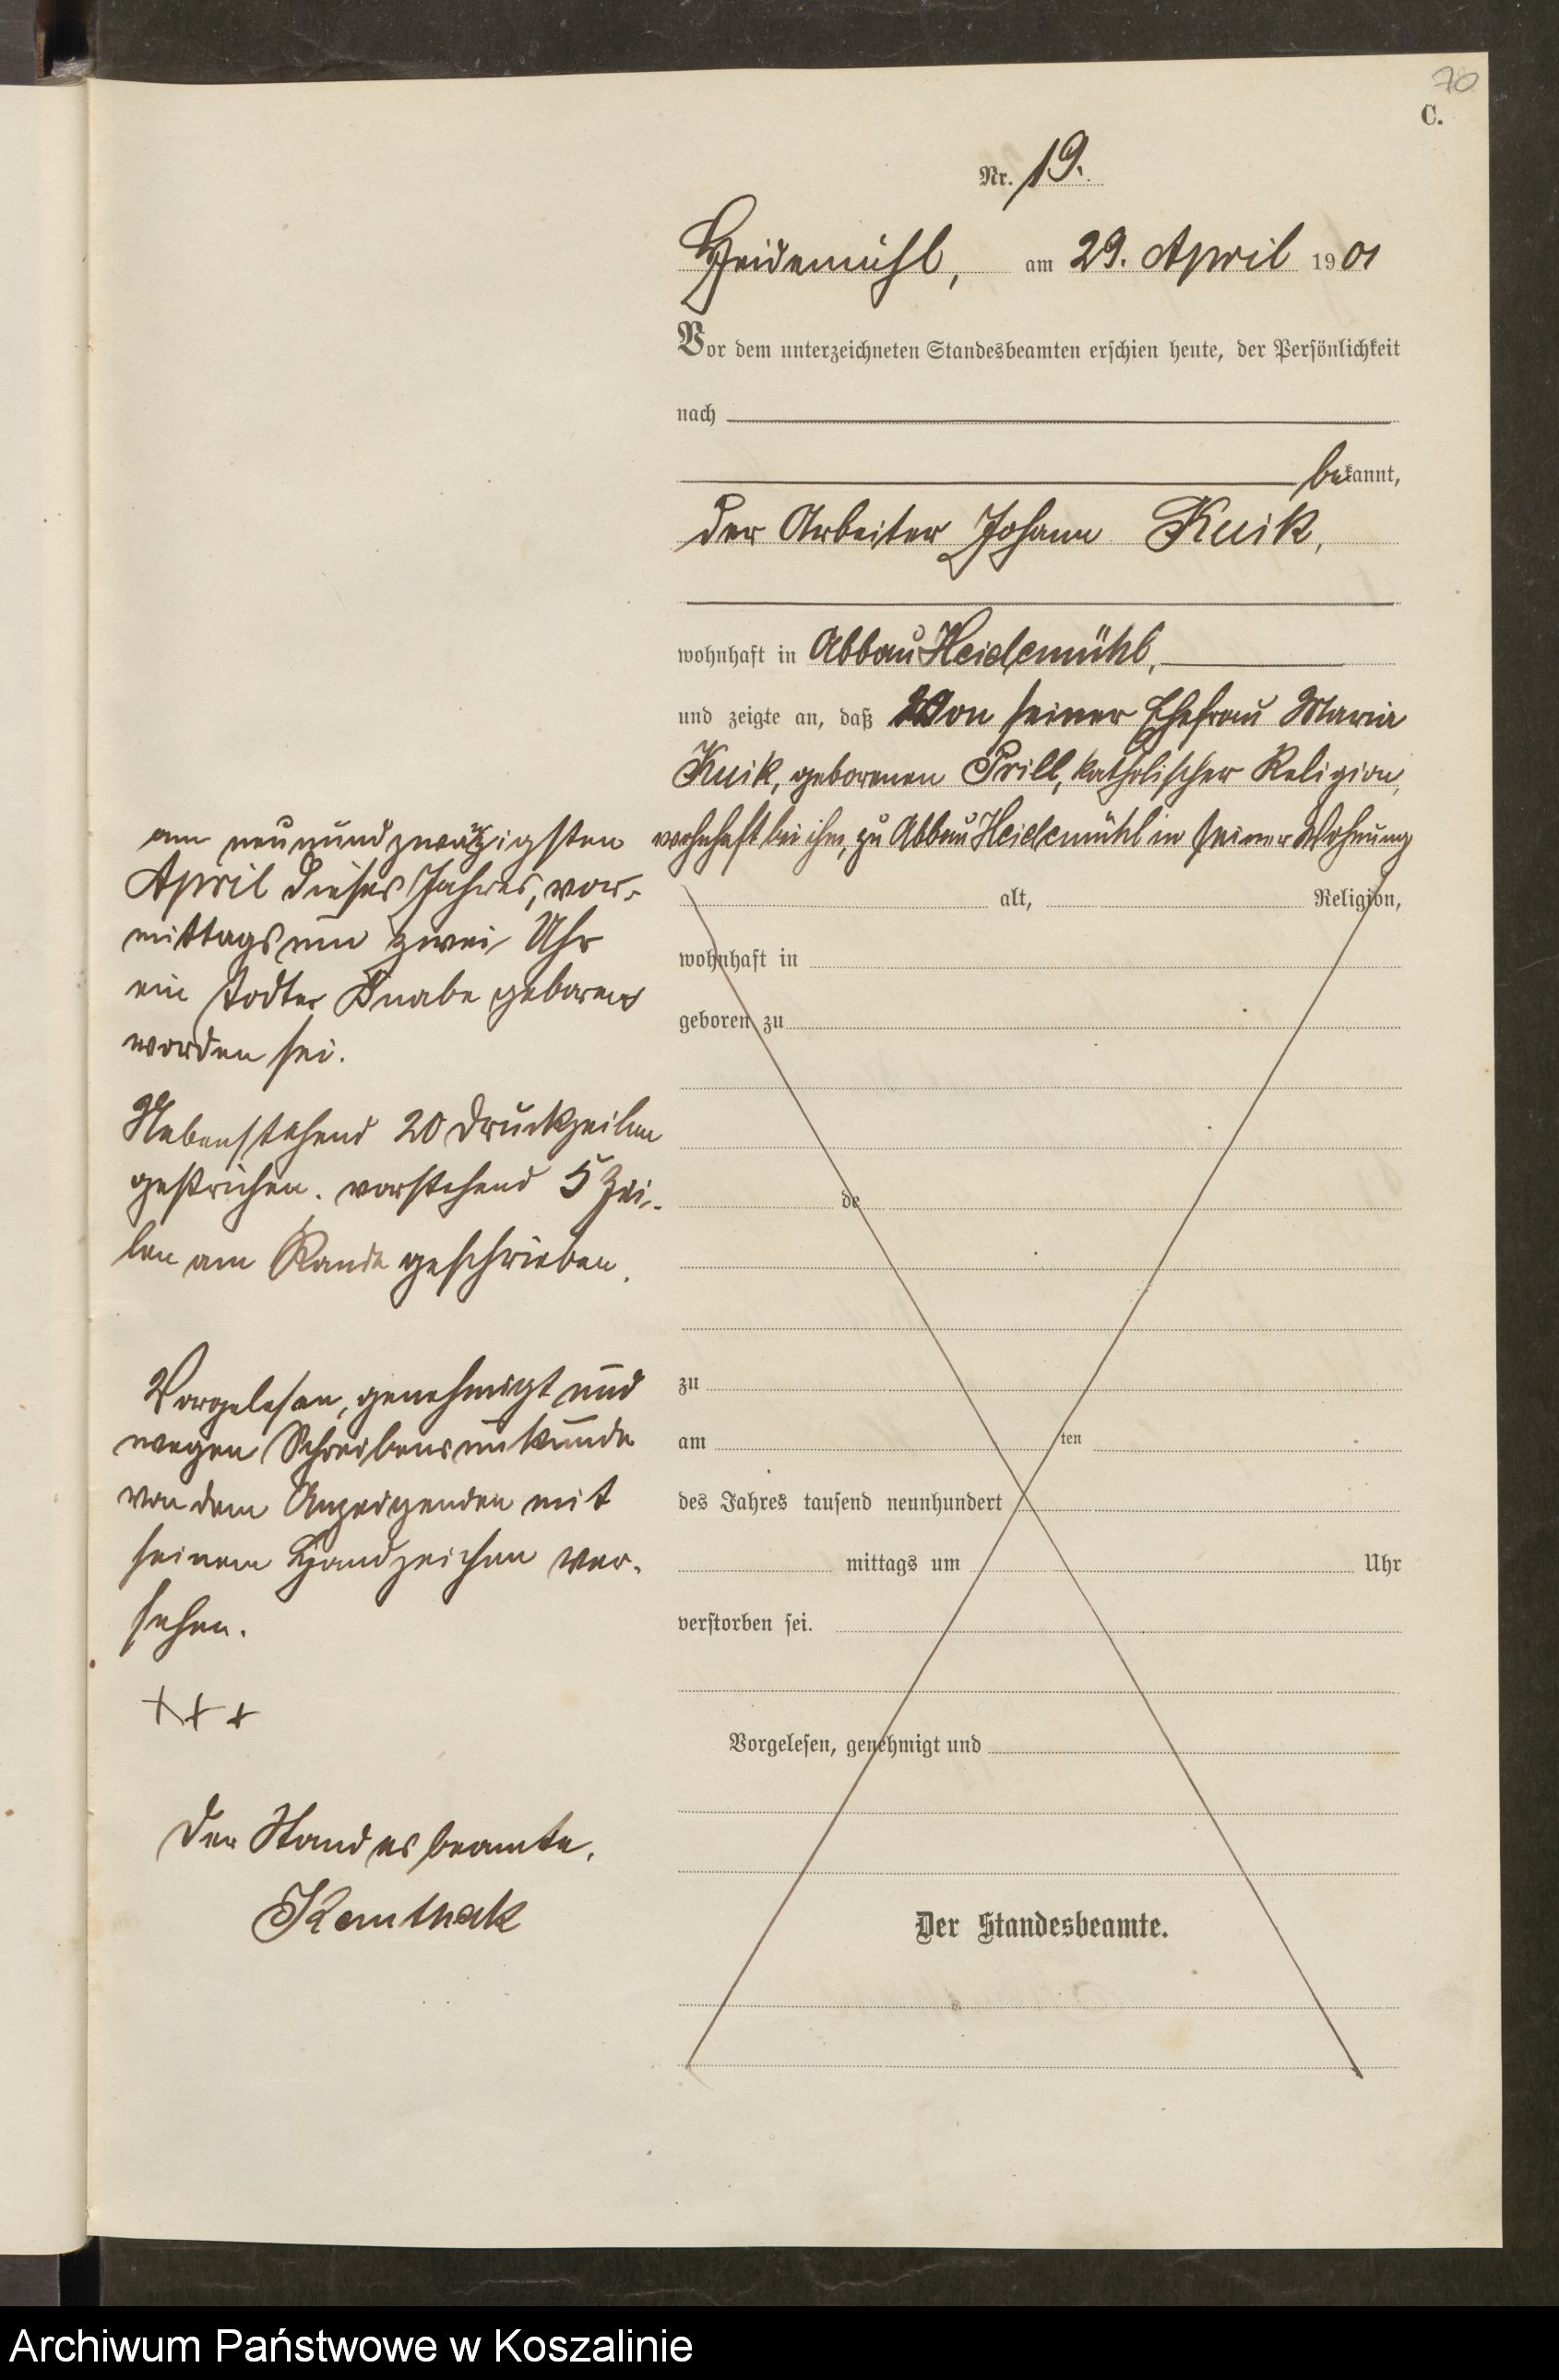 70
C.
Nr. 19.
Heidemühl, am 29. April 1901
Vor dem unterzeichneten Standesbeamten erschien heute, der Persönlichkeit
nach
bekannt,
der Arbeiter Johann Kuik,
wohnhaft in Abbau Heidemühl,
und zeigte an, daß von seiner Ehefrau Maria
Kuik, geborenen Prill, katholischer Religion,
wohnhaft bei ihm, zu Abbau Heidemühl in seiner Wohnung
am neunundzwanzigsten
April dieses Jahres, vor-
mittags um zwei Uhr
ein todter Knabe geboren
worden sei.
Nebenstehend 20 Druckzeilen
gestrichen. vorstehend 5 Zei-
len am Rande geschrieben.
Vorgelesen, genehmigt und
wegen Schreibensunkunde
von dem Anzeigenden mit
seinem Handzeichen ver-
sehen.
+++
Der Standesbeamte.
alt, Religion,
wohnhaft in
geboren zu
de
zu
am ten
des Jahres tausend neunhundert
mittags um Uhr
verstorben sei.
Vorgelesen, genehmigt und
Der Standesbeamte.
Archiwum Państwowe w Koszalinie